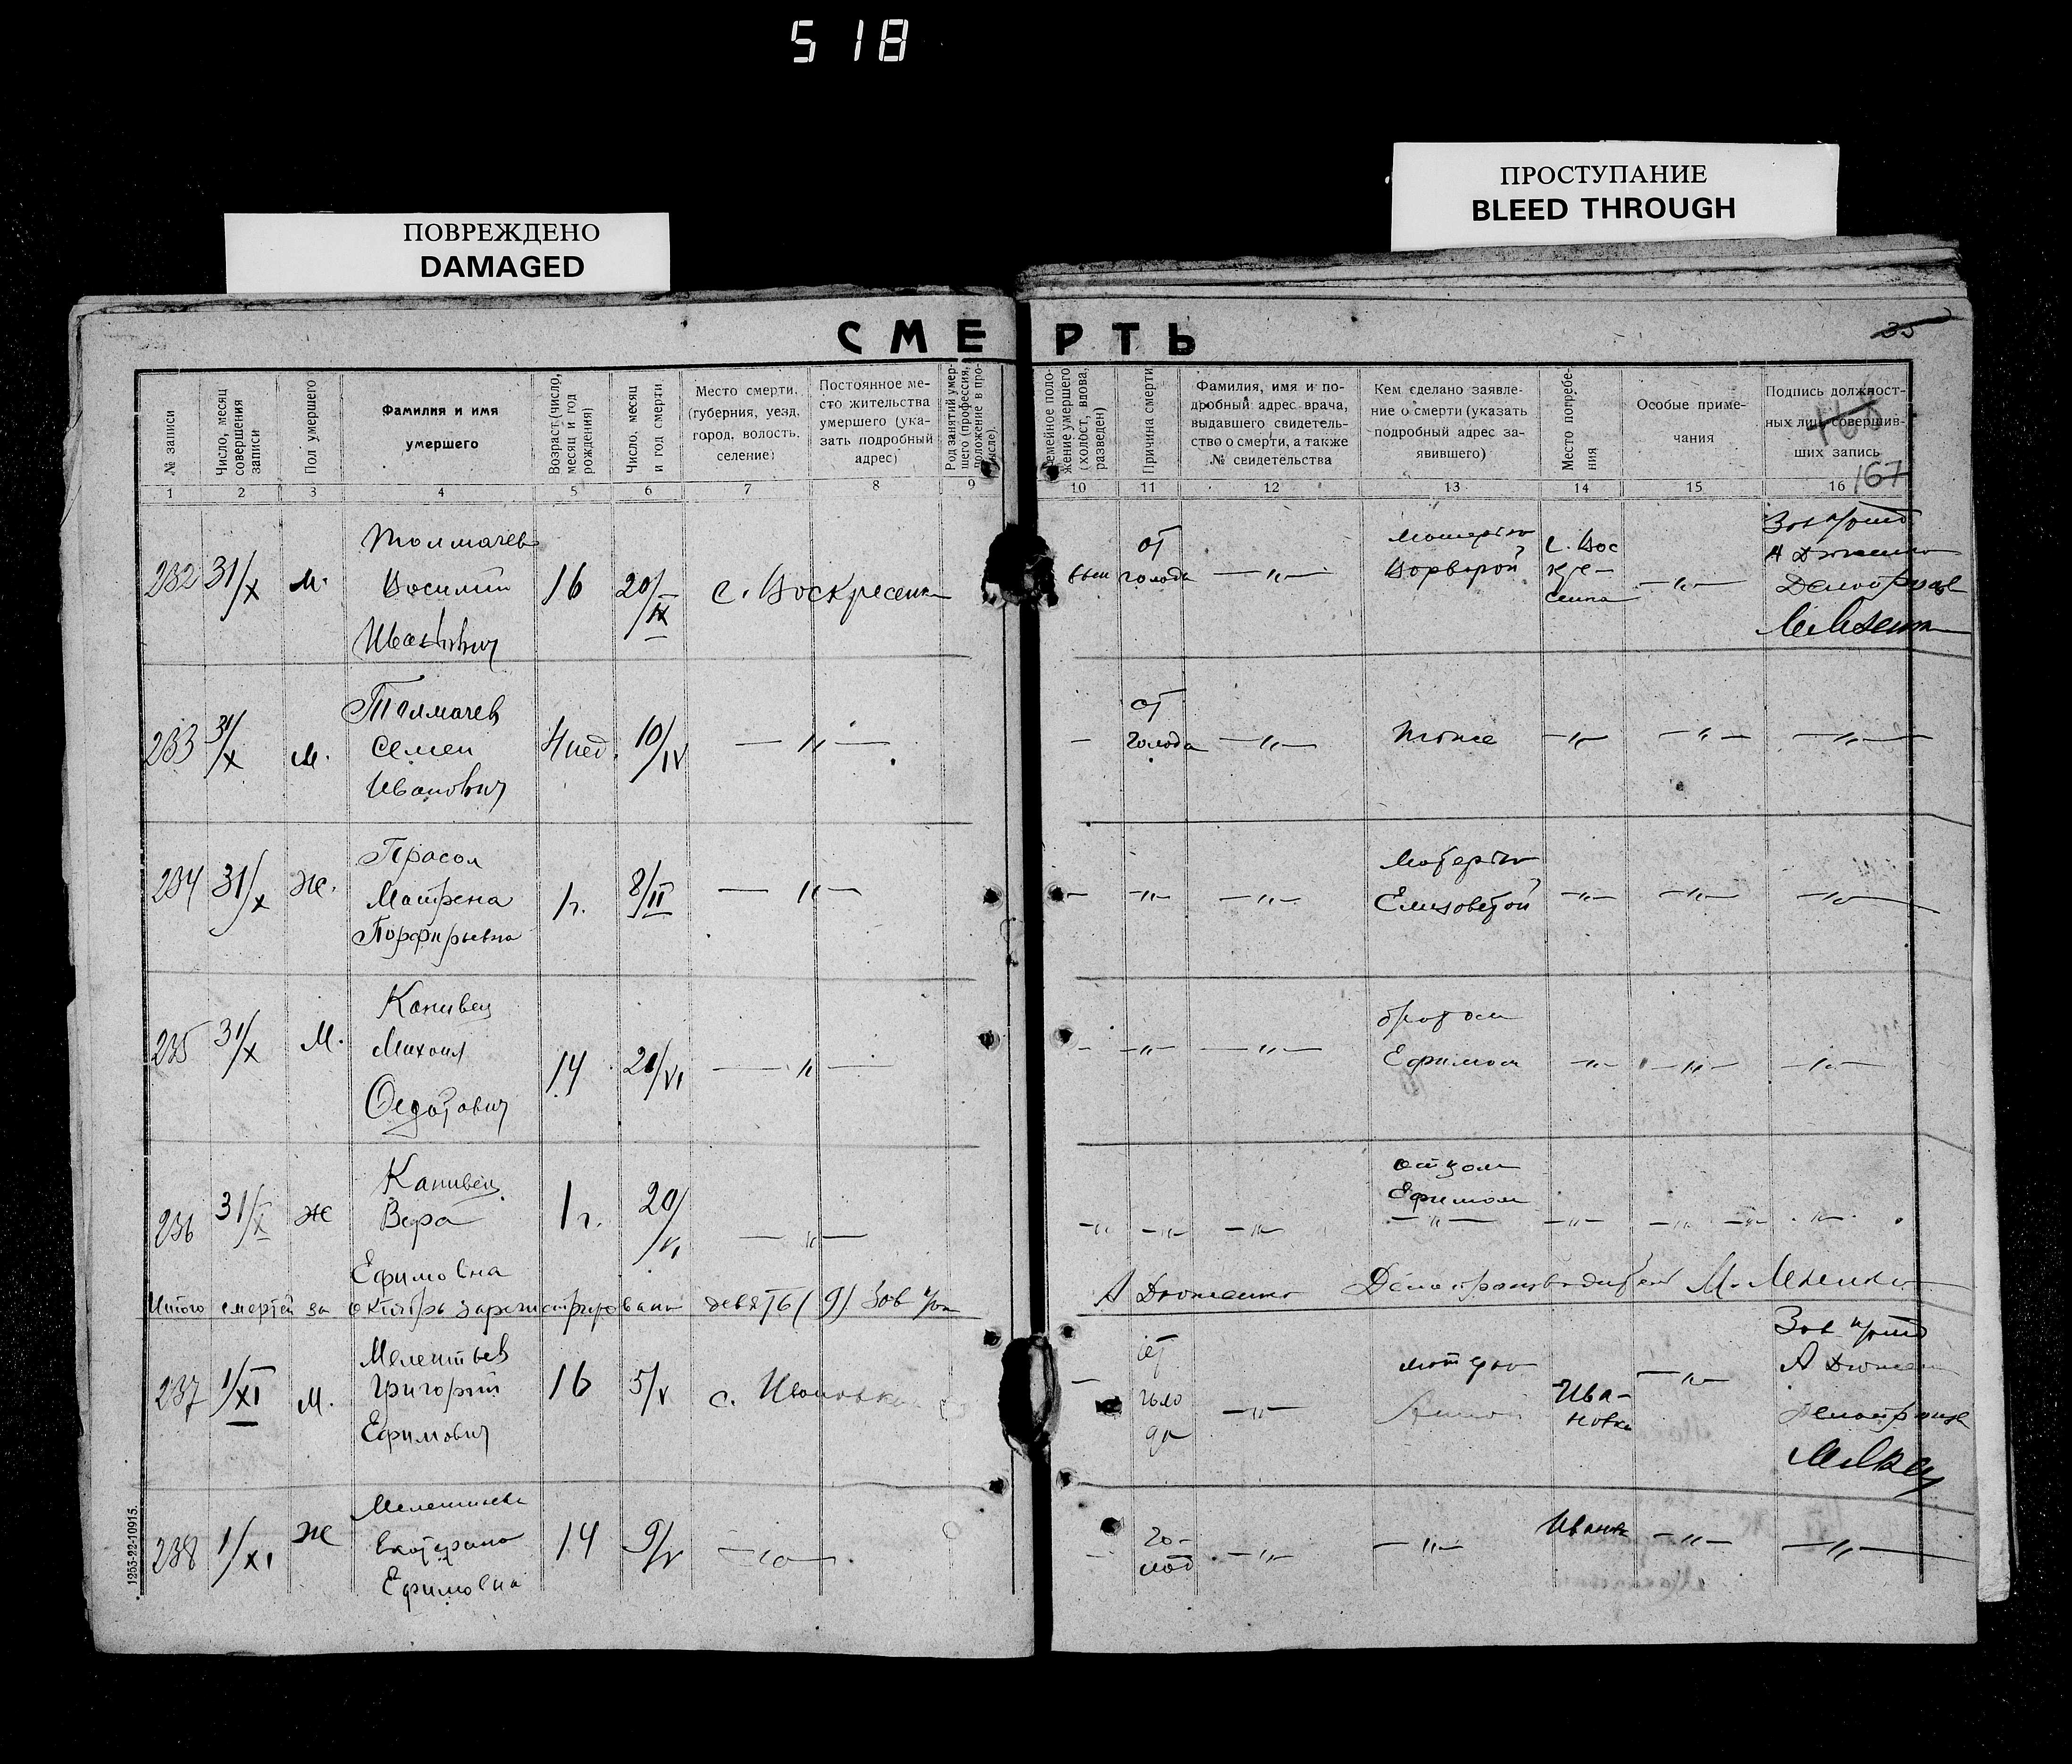 518
ПРОСТУПАНИЕ
BLEED THROUGH
ПОВРЕЖДЕНО
DAMAGED
СМЕРТЬ
35
№ записи
Число, месяц совершения записи
Пол умершего
Фамилия и имя
умершего
Возраст (число, месяц и год рождения)
Число, месяц и год смерти
Место смерти.
(губерния, уезд,
город, волость,
селение)
Постоянное ме-
сто жительства
умершего (ука-
зать подробный
адрес)
Род занятий умер-
шего (профессия,
положение в про-
мысле).
Семейное поло-
жение умершего
(холост, вдова,
разведен)
Причина смерти
Фамилия, имя и по-
дробный адрес врача,
выдавшего свидетель-
ство о смерти, а также
№ свидетельства
Кем сделано заявле-
ние о смерти (указать
подробный адрес за-
явившего)
Место погребе-
ния
Особые приме-
чания
Подпись должност-
ных лиц, совершив-
ших запись
168
167
1 2 3 4 5 6 7 8 9 10 11 12 13 14 15 16
232 31/X м.
Толмачев
Василий
Иванович
16 20/IX с. Воскресенка
от
голода
—〃—
матерью
Варварой
с. Вос
кре-
сенка
—〃—
Зав
233 31/X м.
Толмачев
Семен
Иванович
4 нед. 10/IV —〃—
—
от
голода
—〃— тоже —〃— —〃— —〃—
234 31/X ж.
Прасол
Матрена
Порфирьевна
1 г. 8/II —〃—
— —〃— —〃—
матерью
Елизаветой
—〃— —〃— —〃—
235 31/X М.
Канивец
Михаил
Федотович
14 20/VI —〃—
— —〃— —〃—
братом
Ефимом
—〃— —〃— —〃—
236 31/X ж
Канивец
Вера
Ефимовна
1 г. 20/VI —〃—
—〃— —〃— —〃—
отцом
Ефимом
—〃— —〃— —〃— —〃— —〃—
Итого смертей за октябрь зарегистрировано девять (9) Зав
Делопроизводитель
237 1/XI м.
Мелентьев
Григорий
Ефимович
16 5/V с. Ивановка
—
от
голо
да
—〃—
матерью
Ива-
новка
—〃—
Зав
238 1/XI ж
Мелентьева
Екатерина
Ефимовна
14 9/V —〃—
—
го-
лод
—〃— —〃— —〃— —〃—
1253-22-10915.